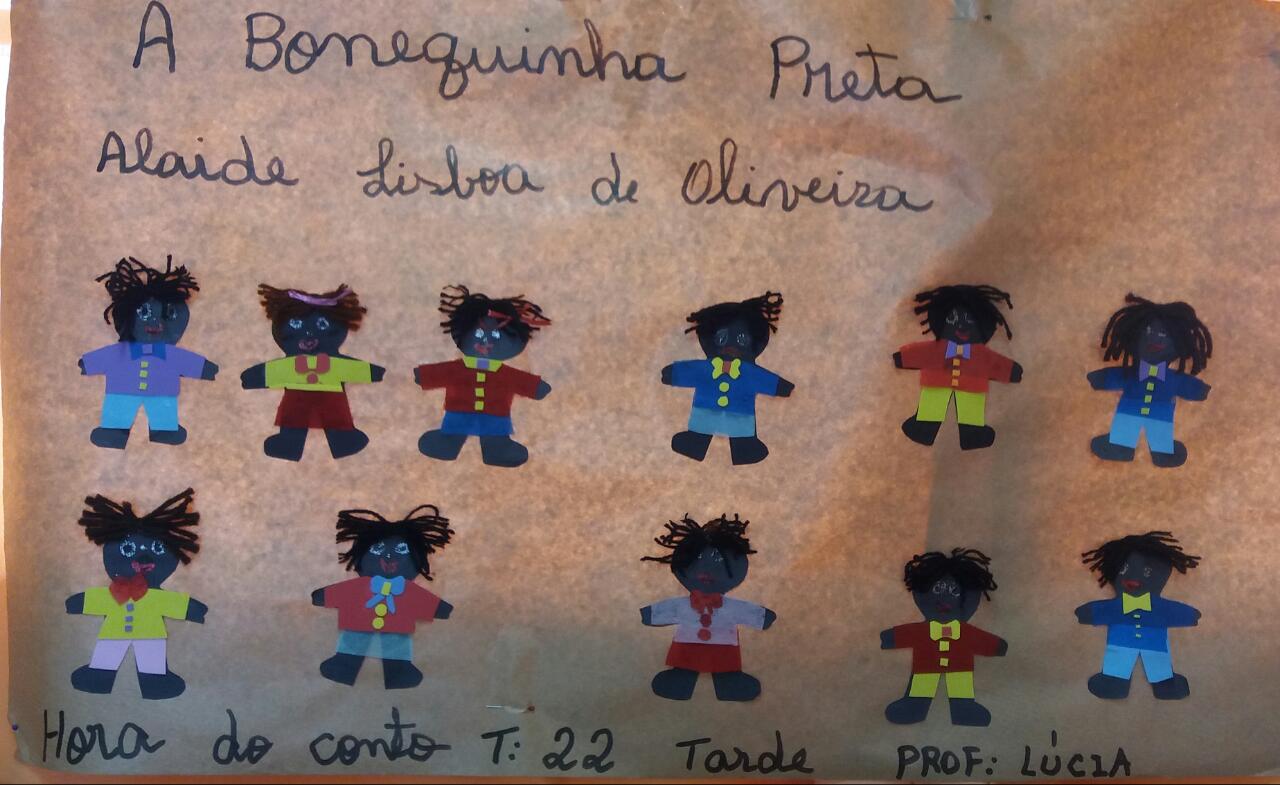 A Bonequinha Preta
Alaide Lisboa de Oliveira
Hora do conto T: 22 Tarde PROF: LÚCIA